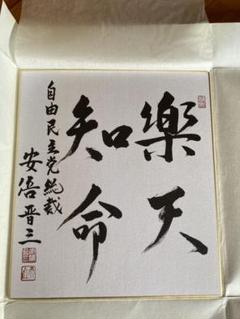 樂天
知命
自由民主党総裁
安倍晋三